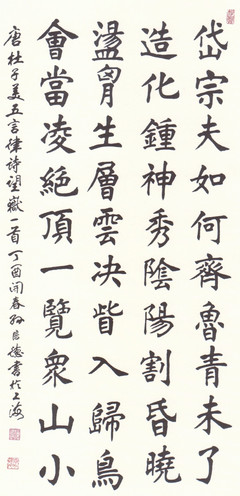 岱宗夫如何齊魯青未了
造化鍾神秀陰陽割昏曉
盪胷生層雲决眥入歸鳥
會當凌絕頂一覽衆山小
唐杜子美五言律詩望嶽一首丁酉開春孫 德書於上海